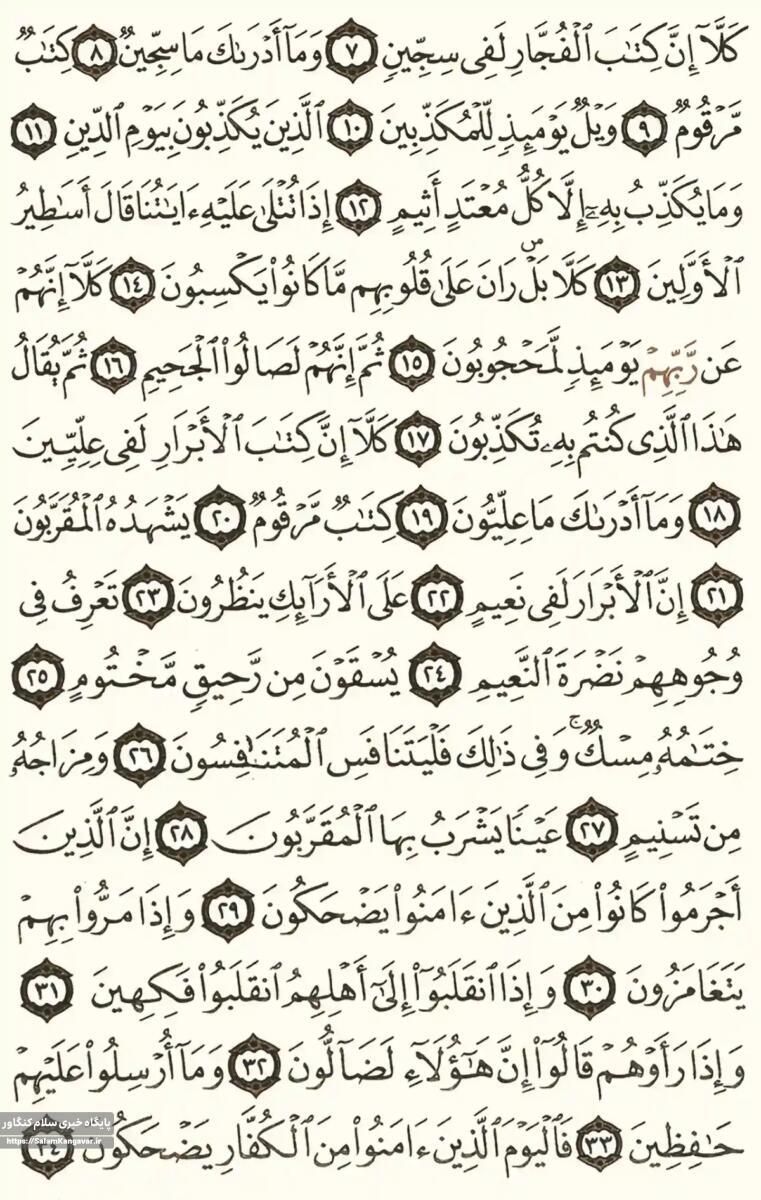 كَلَّآ إِنَّ كِتَٰبَ ٱلْفُجَّارِ لَفِى سِجِّينٍ ٧ وَمَآ أَدْرَىٰكَ مَا سِجِّينٌ ٨ كِتَٰبٌ
مَّرْقُومٌ ٩ وَيْلٌ يَوْمَئِذٍ لِّلْمُكَذِّبِينَ ١٠ ٱلَّذِينَ يُكَذِّبُونَ بِيَوْمِ ٱلدِّينِ ١١
وَمَا يُكَذِّبُ بِهِۦٓ إِلَّا كُلُّ مُعْتَدٍ أَثِيمٍ ١٢ إِذَا تُتْلَىٰ عَلَيْهِ ءَايَٰتُنَا قَالَ أَسَٰطِيرُ
ٱلْأَوَّلِينَ ١٣ كَلَّا بَلْۜ رَانَ عَلَىٰ قُلُوبِهِم مَّا كَانُوا۟ يَكْسِبُونَ ١٤ كَلَّآ إِنَّهُمْ
عَن رَّبِّهِمْ يَوْمَئِذٍ لَّمَحْجُوبُونَ ١٥ ثُمَّ إِنَّهُمْ لَصَالُوا۟ ٱلْجَحِيمِ ١٦ ثُمَّ يُقَالُ
هَٰذَا ٱلَّذِى كُنتُم بِهِۦ تُكَذِّبُونَ ١٧ كَلَّآ إِنَّ كِتَٰبَ ٱلْأَبْرَارِ لَفِى عِلِّيِّينَ
١٨ وَمَآ أَدْرَىٰكَ مَا عِلِّيُّونَ ١٩ كِتَٰبٌ مَّرْقُومٌ ٢٠ يَشْهَدُهُ ٱلْمُقَرَّبُونَ
٢١ إِنَّ ٱلْأَبْرَارَ لَفِى نَعِيمٍ ٢٢ عَلَى ٱلْأَرَآئِكِ يَنظُرُونَ ٢٣ تَعْرِفُ فِى
وُجُوهِهِمْ نَضْرَةَ ٱلنَّعِيمِ ٢٤ يُسْقَوْنَ مِن رَّحِيقٍ مَّخْتُومٍ ٢٥
خِتَٰمُهُۥ مِسْكٌ ۚ وَفِى ذَٰلِكَ فَلْيَتَنَافَسِ ٱلْمُتَنَٰفِسُونَ ٢٦ وَمِزَاجُهُۥ
مِن تَسْنِيمٍ ٢٧ عَيْنًا يَشْرَبُ بِهَا ٱلْمُقَرَّبُونَ ٢٨ إِنَّ ٱلَّذِينَ
أَجْرَمُوا۟ كَانُوا۟ مِنَ ٱلَّذِينَ ءَامَنُوا۟ يَضْحَكُونَ ٢٩ وَإِذَا مَرُّوا۟ بِهِمْ
يَتَغَامَزُونَ ٣٠ وَإِذَا ٱنقَلَبُوٓا۟ إِلَىٰٓ أَهْلِهِمُ ٱنقَلَبُوا۟ فَكِهِينَ ٣١
وَإِذَا رَأَوْهُمْ قَالُوٓا۟ إِنَّ هَٰٓؤُلَآءِ لَضَآلُّونَ ٣٢ وَمَآ أُرْسِلُوا۟ عَلَيْهِمْ
حَٰفِظِينَ ٣٣ فَٱلْيَوْمَ ٱلَّذِينَ ءَامَنُوا۟ مِنَ ٱلْكُفَّارِ يَضْحَكُونَ ٣٤
پایگاه خبری سلام کنگاور
https://SalamKangavar.ir